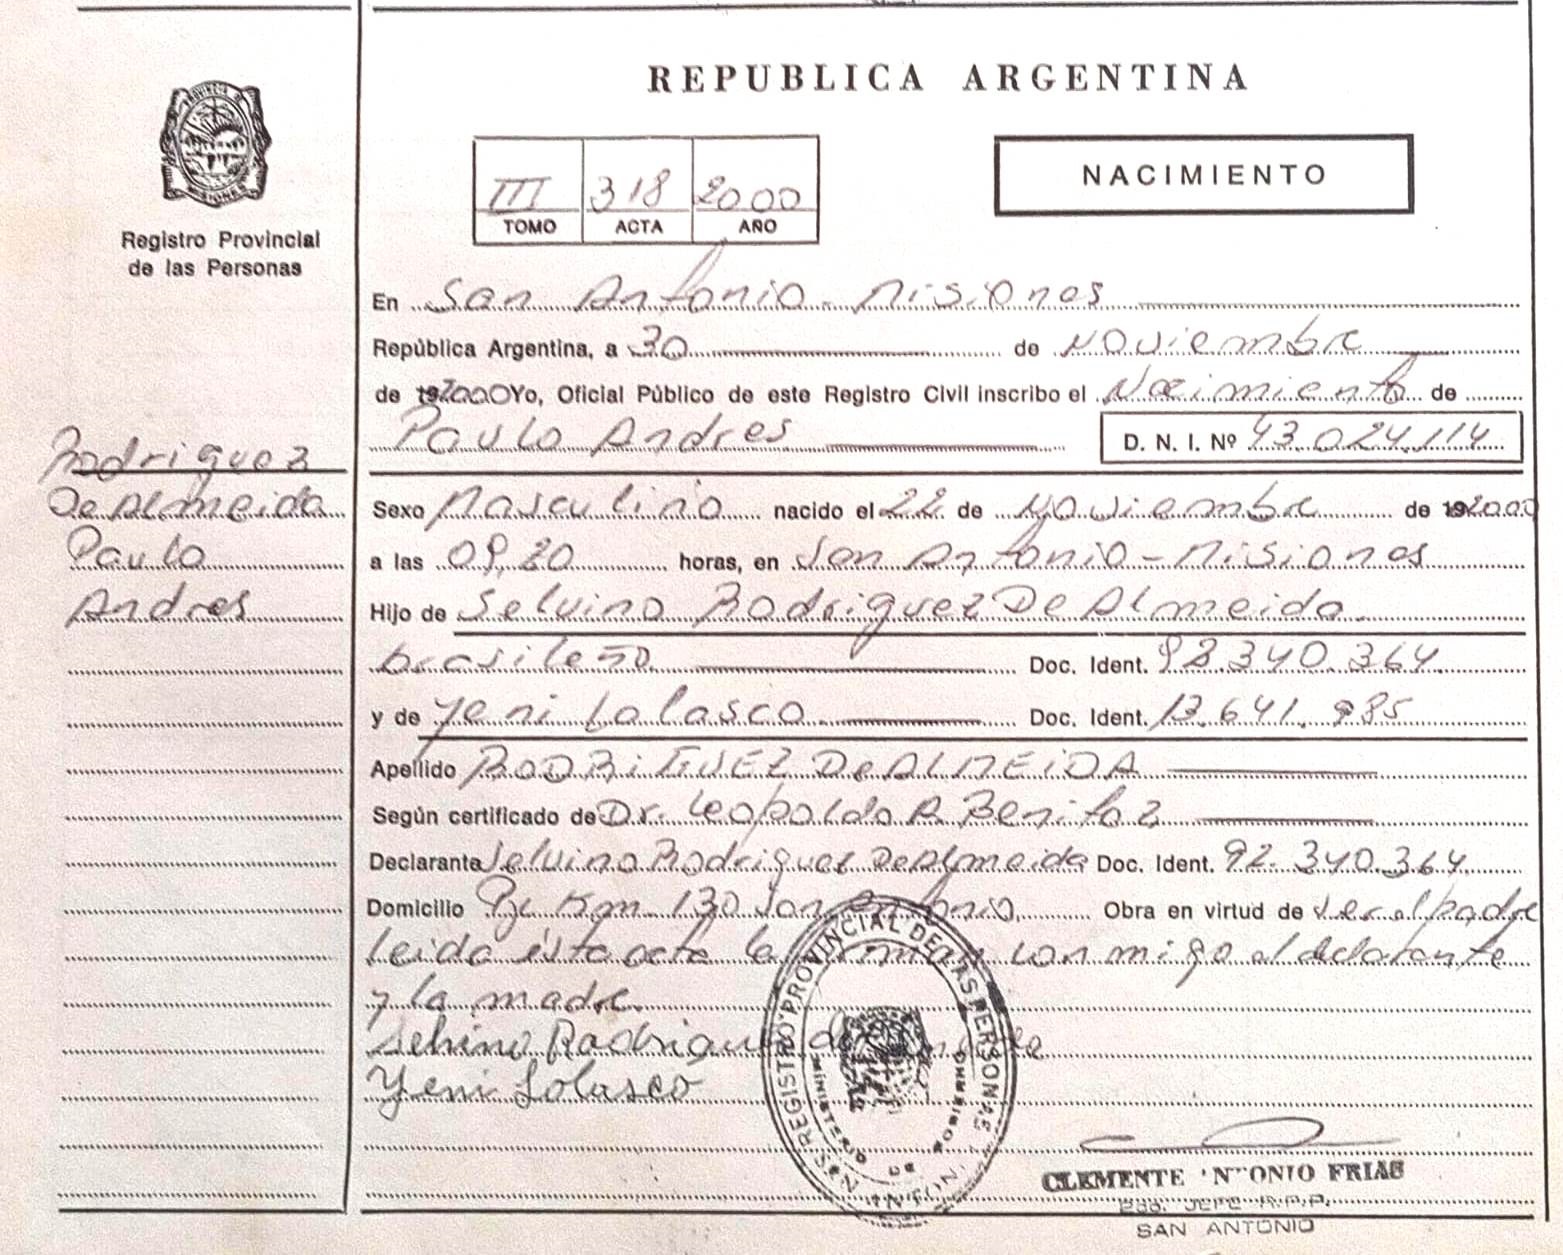 REPUBLICA ARGENTINA
NACIMIENTO
III 318 2000
TOMO ACTA AÑO
Registro Provincial
de las Personas
En San Antonio - Misiones
República Argentina, a 30 de Noviembre
de 192000 Yo, Oficial Público de este Registro Civil inscribo el Nacimiento de
Paulo Andres D. N. I. Nº 43.024.114
Rodriguez
De Almeida
Paulo
Andres
Sexo Masculino nacido el 22 de Noviembre de 192000
a las 09,20 horas, en San Antonio - Misiones
Hijo de Selvino Rodriguez De Almeida
brasileño Doc. Ident. 92.340.364
y de Yeni Lolasco Doc. Ident. 13.641.985
Apellido RODRIGUEZ De ALMEIDA
Según certificado de Dr. Leopoldo A Benitez
Declarante Selvino Rodriguez De Almeida Doc. Ident. 92.340.364
Domicilio Km 130 San Antonio Obra en virtud de ser el padre
leida ésta acta la firman con migo el declarante
y la madre.
Selvino Rodrigue de
Yeni Lolasco
REGISTRO PROVINCIAL DE LAS PERSONAS
MINISTERIO DE GOBIERNO
CLEMENTE ANTONIO FRIAS
JEFE R.P.P.
SAN ANTONIO